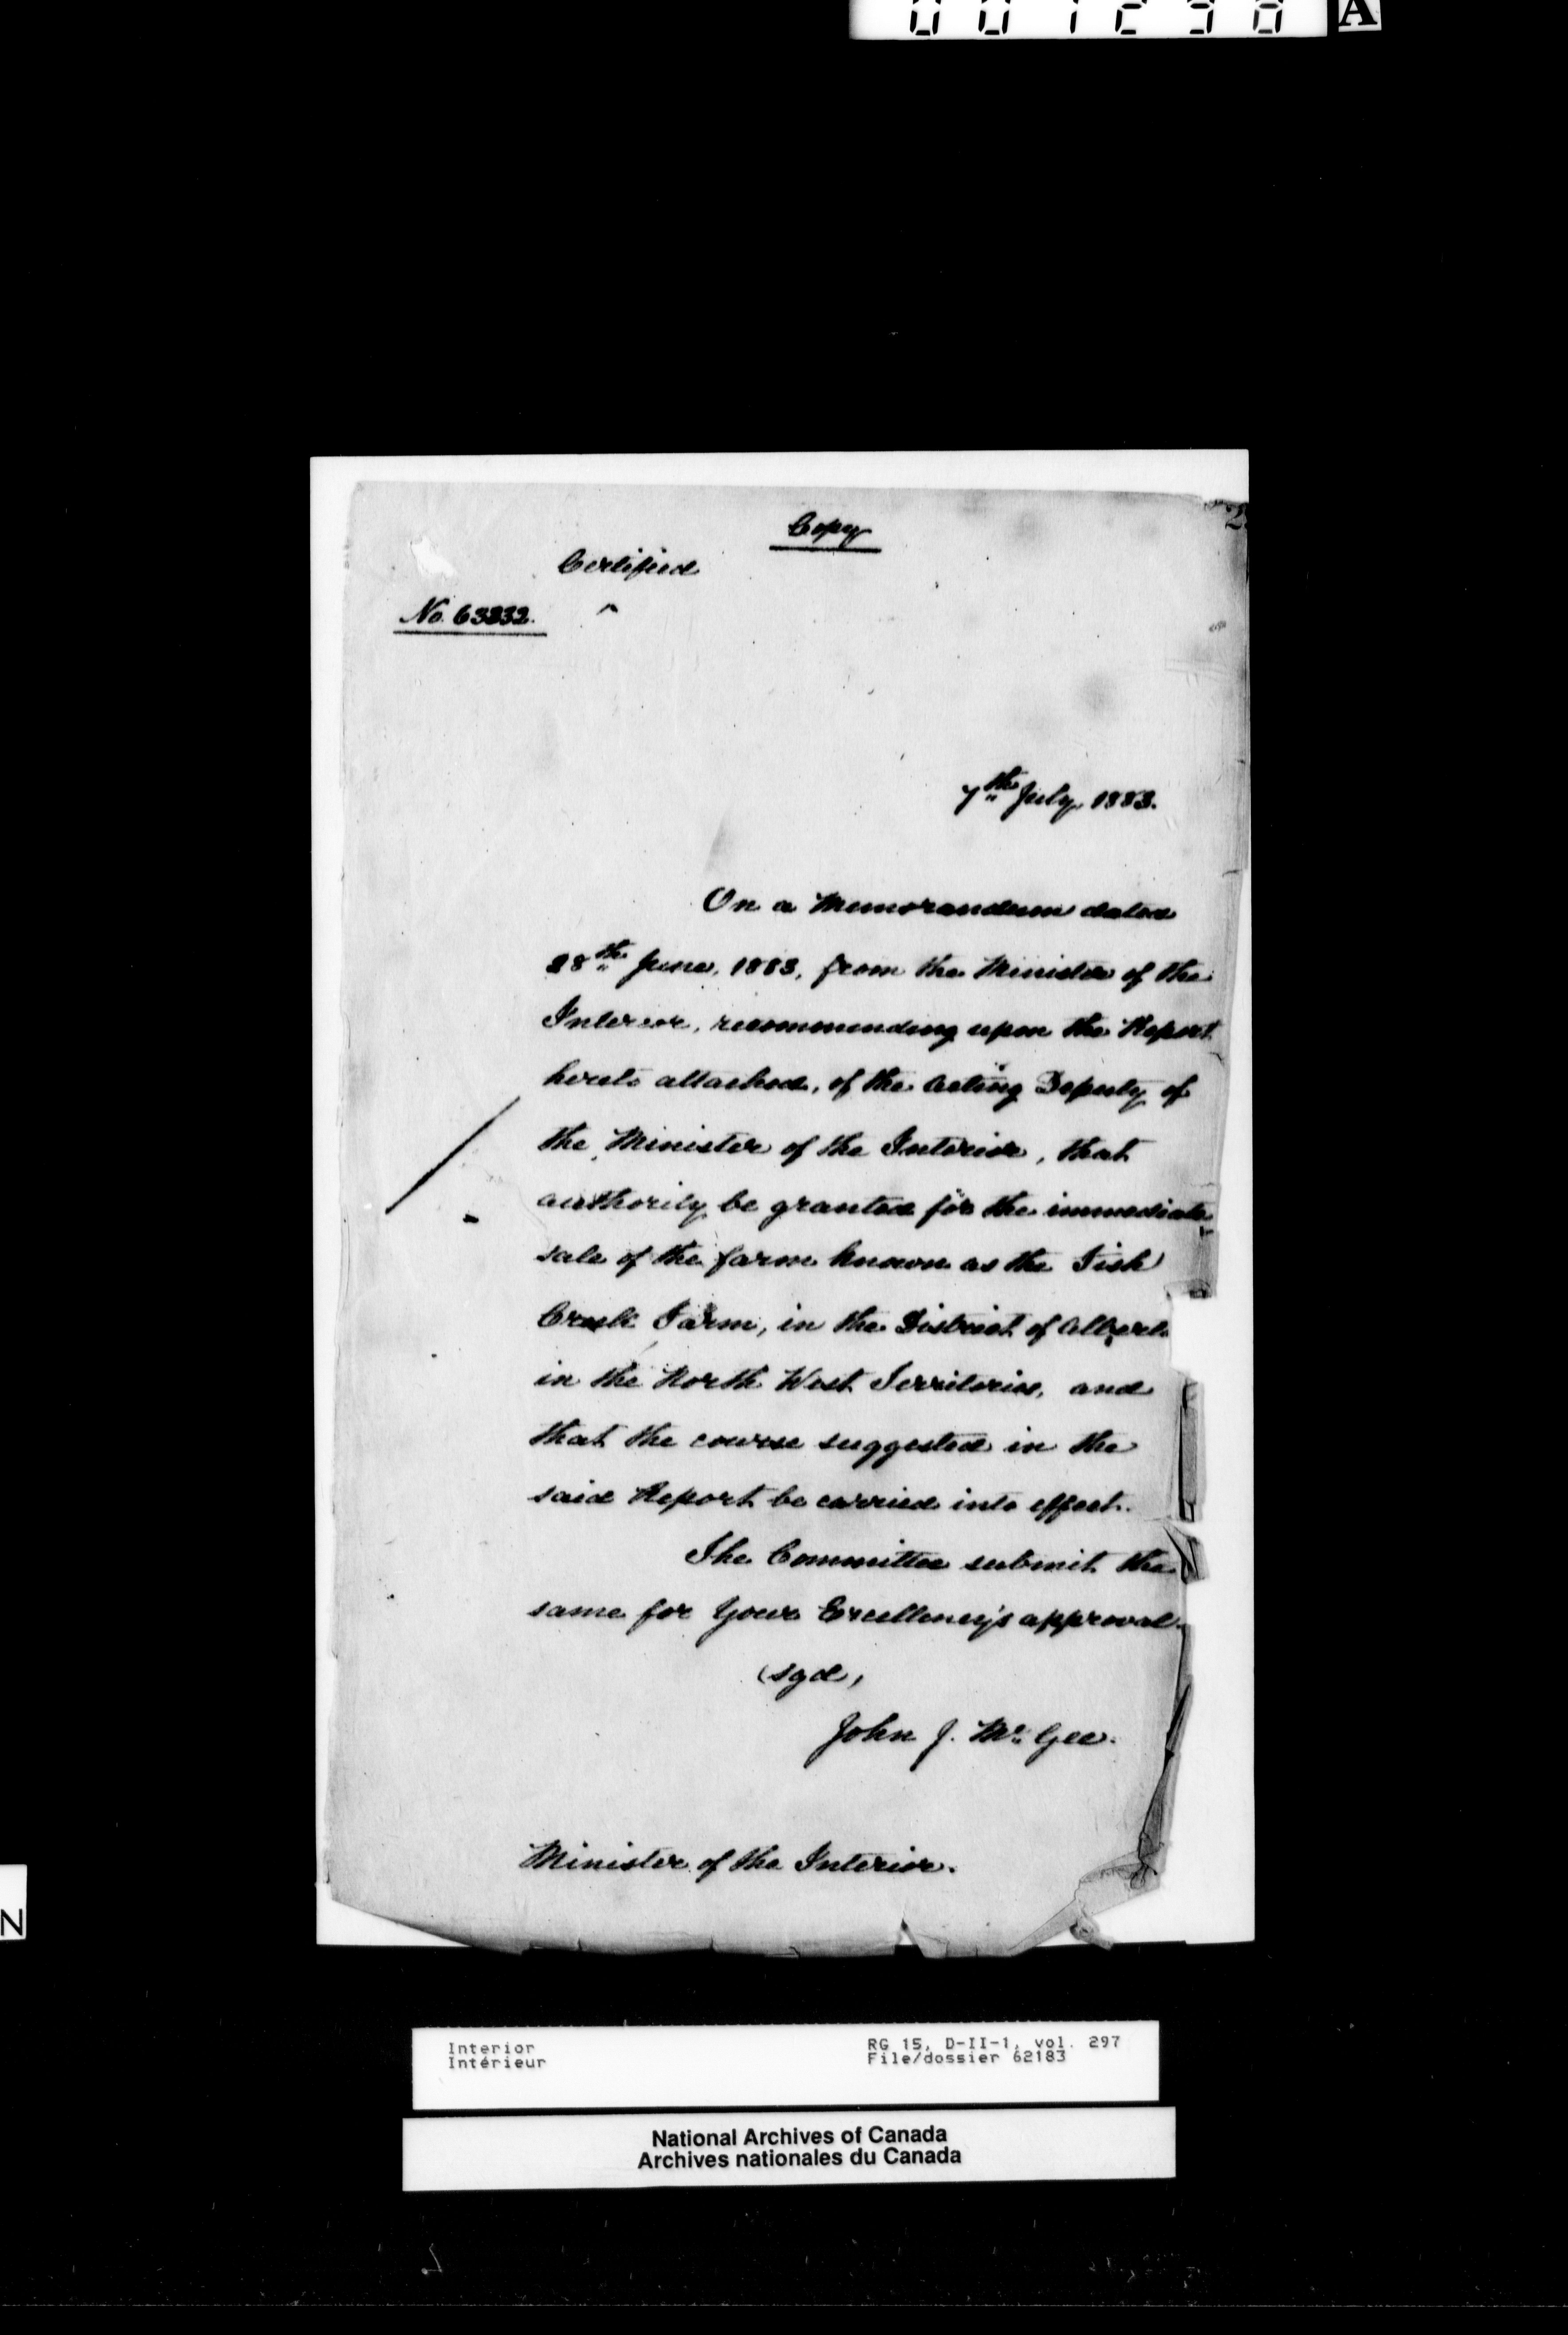 A
Copy
Certified
No. 63832.
7th July, 1883.
On a Memorandum dated
28th June, 1883, from the Minister of the
Interior, recommending upon the Report
hereto attached, of the Acting Deputy of
the Minister of the Interior, that
authority be granted for the immediate
sale of the farm known as the Fish
Creek Farm, in the District of Albert
in the North West Territories, and
that the course suggested in the
said Report be carried into effect.
The Committee submit the
same for Your Excellency's approval.
(sgd,
John J. McGee.
Minister of the Interior.
N
Interior RG 15, D-II-1, vol. 297
Intérieur File/dossier 62183
National Archives of Canada
Archives nationales du Canada